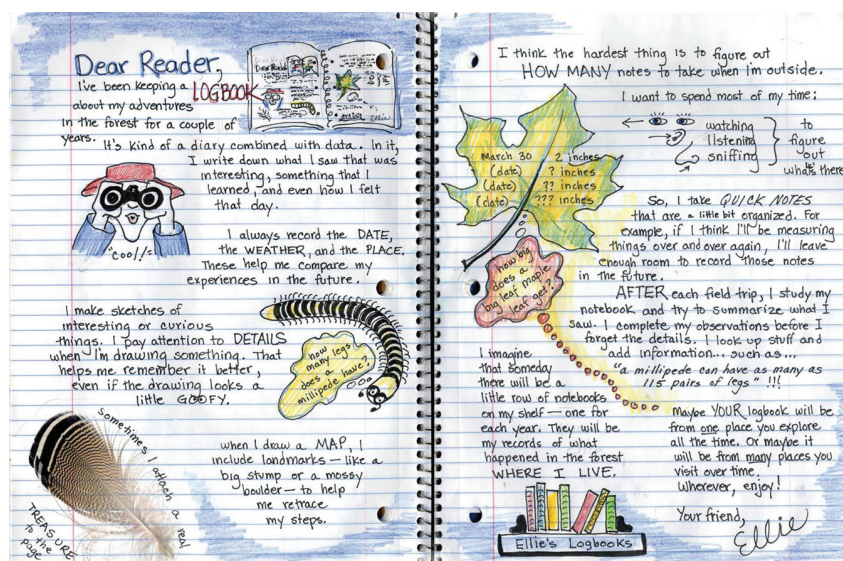 Dear Reader,
I've been keeping a LOGBOOK
about my adventures
in the forest for a couple of
years.
It's kind of a diary combined with data. In it,
I write down what I saw that was
interesting, something that I
learned, and even how I felt
that day.
"cool!"
I always record the DATE,
the WEATHER, and the PLACE.
These help me compare my
experiences in the future.
I make sketches of
interesting or curious
things. I pay attention to DETAILS
when I'm drawing something. That
helps me remember it better,
even if the drawing looks a
little GOOFY.
how
many legs
does a
millipede have?
sometimes I attach a real
TREASURE
to the
page
when I draw a MAP, I
include landmarks — like a
big stump or a mossy
boulder — to help
me retrace
my steps.
I think the hardest thing is to figure out
HOW MANY notes to take when i'm outside.
I want to spend most of my time:
watching
listening
sniffing
to
figure
out
what's there
March 30 2 inches
(date) ? inches
(date) ?? inches
(date) ??? inches
how big
does a
big leaf maple
leaf get?
So, I take QUICK NOTES
that are a little bit organized. For
example, if I think I'll be measuring
things over and over again, I'll leave
enough room to record those notes
in the future.
AFTER each field trip, I study my
notebook and try to summarize what I
saw. I complete my observations before I
forget the details. I look up stuff and
add information... such as...
"a millipede can have as many as
115 pairs of legs" !!!
I imagine
that someday
there will be a
little row of notebooks
on my shelf — one for
each year. They will be
my records of what
happened in the forest
WHERE I LIVE.
Ellie's Logbooks
Maybe YOUR logbook will be
from one place you explore
all the time. Or maybe it
will be from many places you
visit over time.
Wherever, enjoy!
Your friend,
Ellie